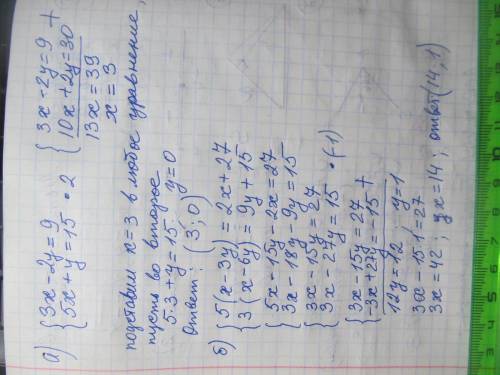 а) {3x-2y=9
5x+y=15 · 2
{3x-2y=9 +
10x+2y=30
13x=39
x=3
подставим x=3 в любое уравнение,
пусть во второе
5·3+y=15, y=0
Ответ: (3; 0)
б) {5(x-3y)=2x+27
3(x-6y)=9y+15
{5x-15y-2x=27
3x-18y-9y=15
{3x-15y=27
3x-27y=15 · (-1)
{3x-15y=27 +
-3x+27y=-15
12y=12, y=1
3x-15·1=27
3x=42; x=14; ответ(14;1)